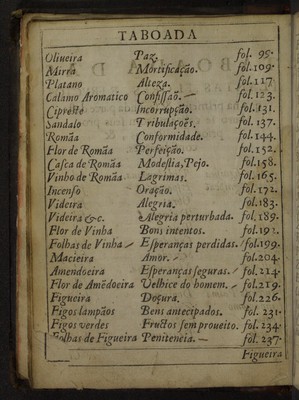 TABOADA
Oliueira Paz. fol. 95.
Mirra Mortificação. fol.109.
Platano Alteza. fol.117
Calamo Aromatico Confissaõ. fol.123.
Cipreste Incorrupção. fol.131.
Sandalo Tribulaçoẽs. fol.137.
Romãa Conformidade. fol.144.
Flor de Romãa Perfeição. fol.152.
Casca de Romãa Modestia, Pejo. fol.158.
Vinho de Romãa Lagrimas. fol.165.
Incenso Oração. fol.172.
Videira Alegria. fol.183.
Videira &c. Alegria perturbada. fol.189.
Flor de Vinha Bons intentos. fol.193.
Folhas de Vinha Esperanças perdidas. fol.199.
Macieira Amor. fol.204.
Amendoeira Esperanças seguras. fol.214.
Flor de Amẽdoeira Velhice do homem. fol.219.
Figueira Doçura. fol.226.
Figos lampãos Bens antecipados. fol.231.
Figos verdes Fructos sem proueito. fol.234.
Folhas de Figueira Peniteneia. fol.237.
Figueira